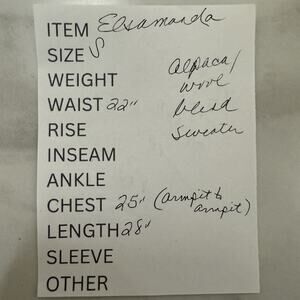 ITEM Elsamanda
SIZE S
WEIGHT
Alpaca/
wool
blend
sweater
WAIST 22"
RISE
INSEAM
ANKLE
CHEST 25" (armpit to
armpit)
LENGTH 28"
SLEEVE
OTHER